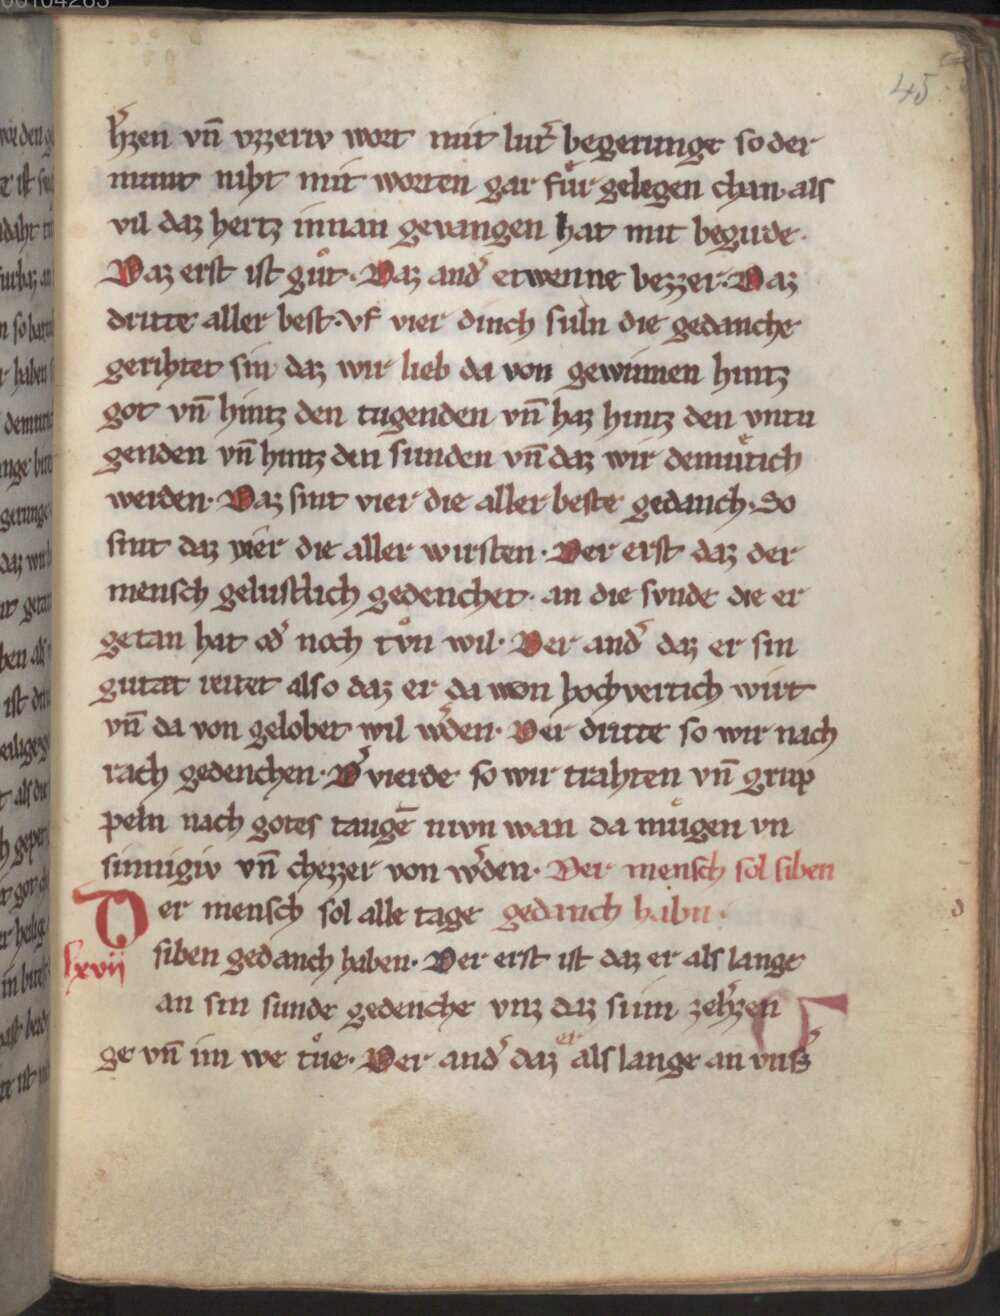 45
h̓zen vn̄ vzzeriv wort mit lut̓ begerunge so der
munt niht mit worten gar fuͤr gelegen chan· als
vil daz hertz innan gevangen hat mit begirde·
Daz erst ist guͦt· Daz and̓ etwenne bezzer· Daz
dritte aller best· Vf vier dinch suln die gedanche
gerihtet sin daz wir lieb da von gewinnen hintz
got vn̄ hintz den tugenden vn̄ haz hintz den vntu
genden vn̄ hintz den sunden vn̄ daz wir demuͤtich
werden· Daz sint vier die aller beste gedanch· So
sint daz vier die aller wirsten· Der erst daz der
mensch gelustlich gedenchet· an die svnde die er
getan hat od̓ noch tvͦn wil· Der and̓ daz er sin
gutat reitet also daz er da von hochvertich wirt
vn̄ da von gelobet wil w̓den· Der dritte so wir nach
rach gedenchen· D̓ vierde so wir trahten vn̄ grup
peln nach gotes taugē nivn wan da muͤgen vn
sinnigiv vn̄ chezzer von w̓den· Der mensch sol siben
Der mensch sol alle tage gedanch habn·
lxvij siben gedanch haben· Der erst ist daz er als lange
an sin sunde gedenche vnz daz siin zeh̓zen
ge vn̄ im we tuͤe· Der and̓ daz er als lange an vns̓